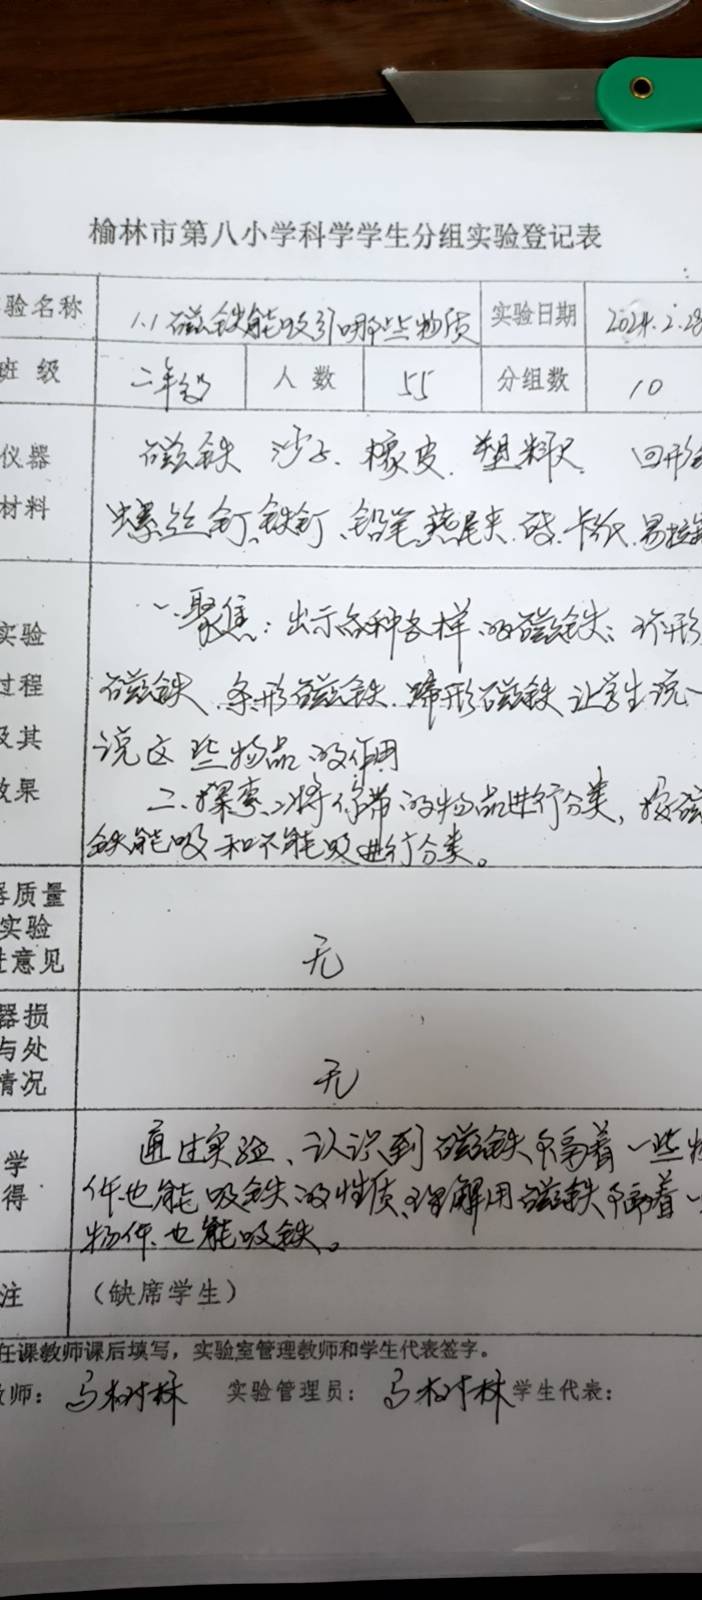 榆林市第八小学科学学生分组实验登记表
验名称 1.1磁铁能吸引哪些物质 实验日期 2024.2.28
班级 二年级 人数 55 分组数 10
仪器 磁铁 沙子、橡皮、塑料尺、回形
材料 螺丝钉、铁钉、铅笔、燕尾夹、卡纸、易拉
一、聚焦：出示各种各样的磁铁：环形
实验
过程 磁铁、条形磁铁、蹄形磁铁让学生说一
及其 说这些物品的作用
效果 二、探索：将你带的物品进行分类，按磁
铁能吸和不能吸进行分类。
器质量
实验
进意见 无
器损
与处
情况 无
学 通过实验、认识到磁铁隔着一些物
得 件也能吸铁的性质、理解用磁铁隔着一
物件也能吸铁。
注 （缺席学生）
任课教师课后填写，实验室管理教师和学生代表签字。
教师：马树林 实验管理员：马树林 学生代表：